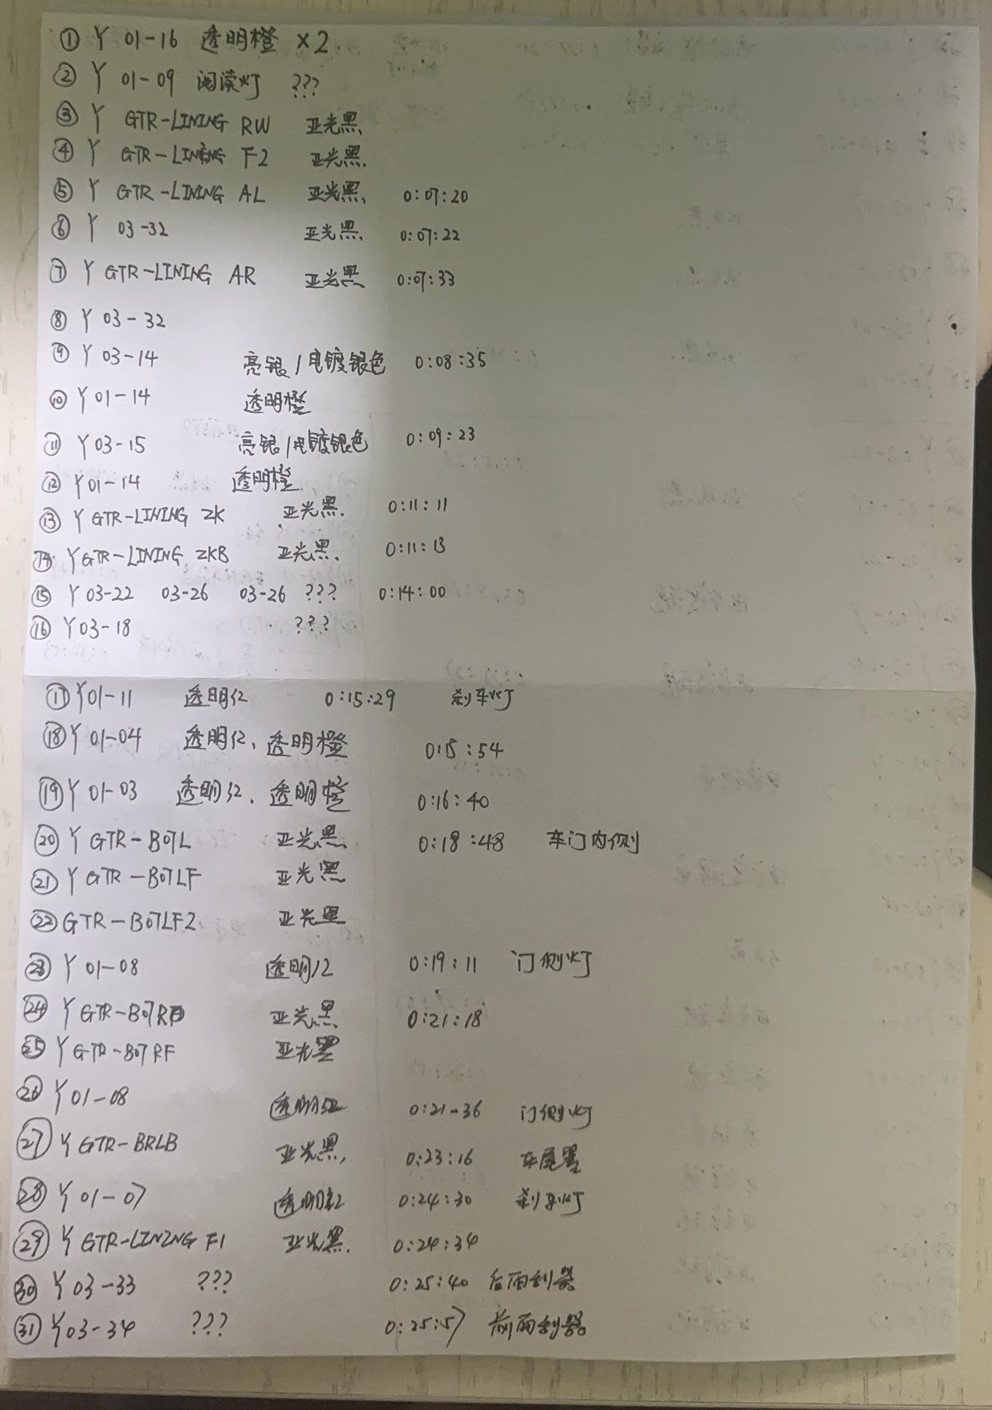 ① Y 01-16 透明橙 ×2
② Y 01-09 阅读灯 ???
③ Y GTR-LINING RW 亚光黑
④ Y GTR-LINING F2 亚光黑
⑤ Y GTR-LINING AL 亚光黑 0:07:20
⑥ Y 03-32 亚光黑 0:07:22
⑦ Y GTR-LINING AR 亚光黑 0:07:33
⑧ Y 03-32
⑨ Y 03-14 亮银/电镀银色 0:08:35
⑩ Y 01-14 透明橙
⑪ Y 03-15 亮银/电镀银色 0:09:23
⑫ Y 01-14 透明橙
⑬ Y GTR-LINING ZK 亚光黑. 0:11:11
⑭ Y GTR-LINING ZKB 亚光黑. 0:11:13
⑮ Y 03-22 03-26 03-26 ??? 0:14:00
⑯ Y 03-18 ???
⑰ Y 01-11 透明红 0:15:29 刹车灯
⑱ Y 01-04 透明红、透明橙 0:15:54
⑲ Y 01-03 透明红、透明橙 0:16:40
⑳ Y GTR-BOTL 亚光黑 0:18:48 车门内侧
㉑ Y GTR-BOTLF 亚光黑
㉒ GTR-BOTLF2 亚光黑
㉓ Y 01-08 透明红 0:19:11 门侧灯
㉔ Y GTR-BOTR 亚光黑 0:21:18
㉕ Y GTR-BOTRF 亚光黑
㉖ Y 01-08 透明红 0:21-36 门侧灯
㉗ Y GTR-BRLB 亚光黑, 0:23:16 车尾
㉘ Y 01-07 透明红 0:24:30 刹车灯
㉙ Y GTR-LINING F1 亚光黑. 0:24:34
㉚ Y 03-33 ??? 0:25:40 后雨刮器
㉛ Y 03-34 ??? 0:25:57 前雨刮器